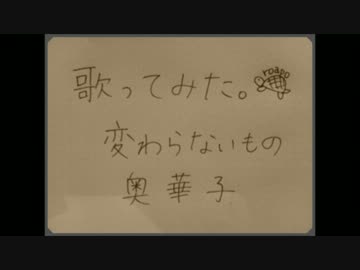 歌ってみた。
roapo
変わらないもの
奥華子